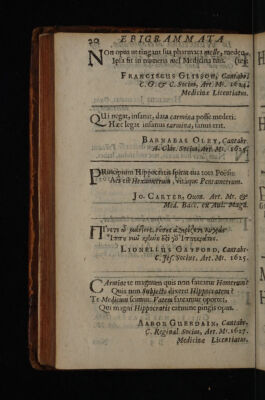 20 EPIGRAMMATA
Non opus ut tingant sua pharmaca melle, medeḡ.
Ipsa sit in numeris mel Medicina tuis. (tur:
FRANCISCUS GLISSON, Cantabr.
C. G. & C. Socius, Art. Mr. 1624.
Medicinæ Licentiatus.
Qui negat, insanit, data carmina posse mederi:
Hæc legat insanus carmina, sanus erit.
BARNABAS OLEY, Cantabr.
A. Clar. Socius, Art. Mr. 1625.
PRincipium Hippocratis spirat
Ars est Hexametrum, Vitaque Pentametrum.
JO. CARTER, Oxon. Art. Mr. &
Med. Bacc. ex Aul. Magd.
LIONELLUS GATFORD, Cantabr.
C. Jes. Socius, Art. Mr. 1625.
Carmine te magnum quis non fateatur Homerum?
Quis non Subjecto dixerit Hippocratem?
Te Medicum somus. Vatem fateamur oportet,
Qui magni Hippocratis carmine pingis opus.
AARON GUERDAIN, Cantabr.
C. Reginal. Socius, Art. Mr. 1627.
Medicinæ Licentiatus.